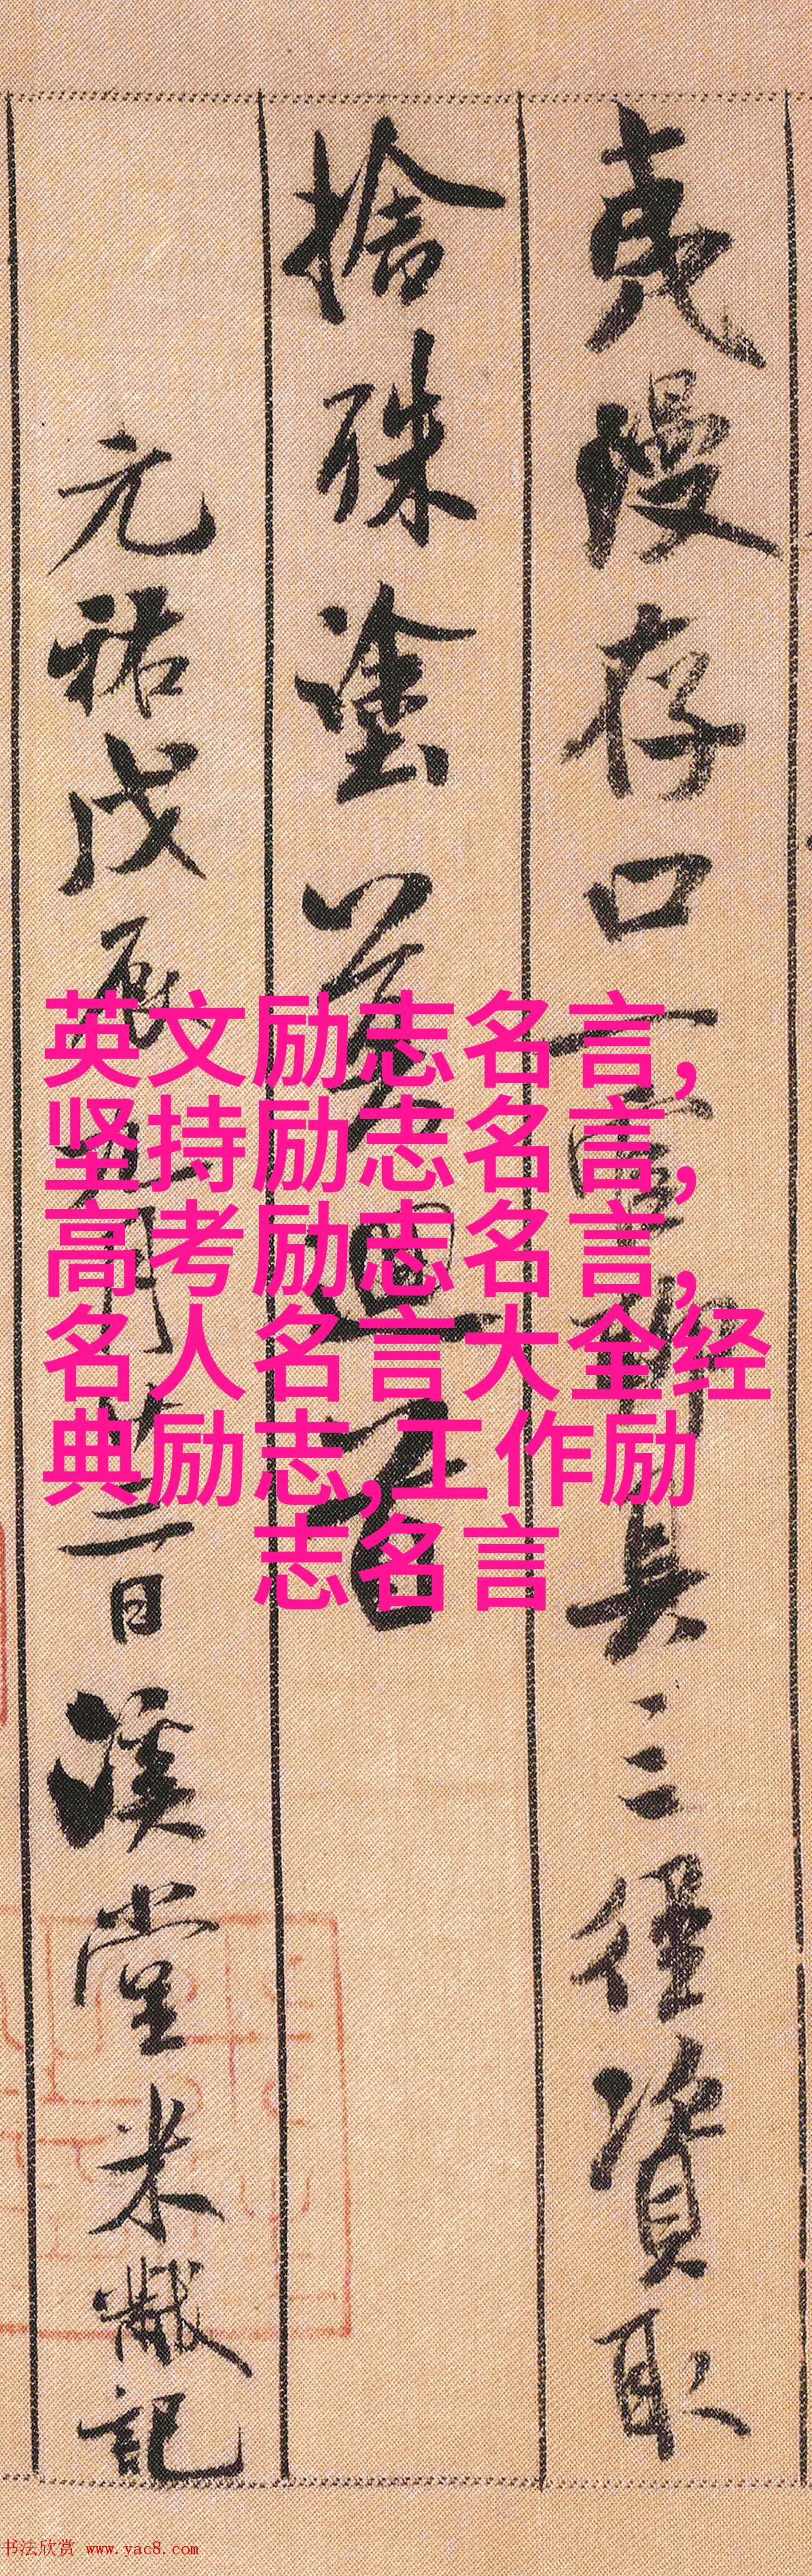 夷漫存口一官聊具三徑資取
捨殊塗莫迴首
元祐戊辰九月廿三日溪堂米黻記
英文励志名言,
坚持励志名言,
高考励志名言,
名人名言大全经
典励志,工作励
志名言
书法欣赏 www.yac8.com